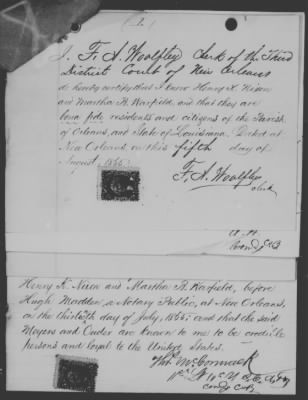 I. F. A. Woolfley Clerk of the Third
District Court of New Orleans
do hereby certify that I know Henry K. Nixon
and Martha A. Warfield, and that they are
bona fide residents and citizens of the Parish
of Orleans, and State of Louisiana. Dated at
New Orleans, on this fifth day of
August 1865.
F. A. Woolfley
Clerk
Henry K. Nixon and Martha A. Warfield, before
Hugh Madden, a Notary Public, at New Orleans,
on the thirtieth day of July, 1865; and that the said
Meyers and are known to me to be credible
persons and loyal to the United States.
McCormack